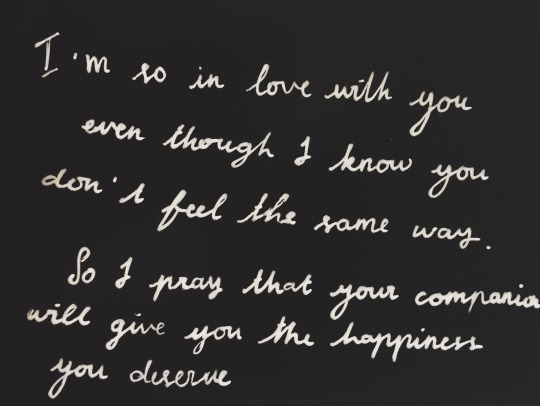 I'm so in love with you
even though I know you
don't feel the same way.
So I pray that your companion
will give you the happiness
you deserve